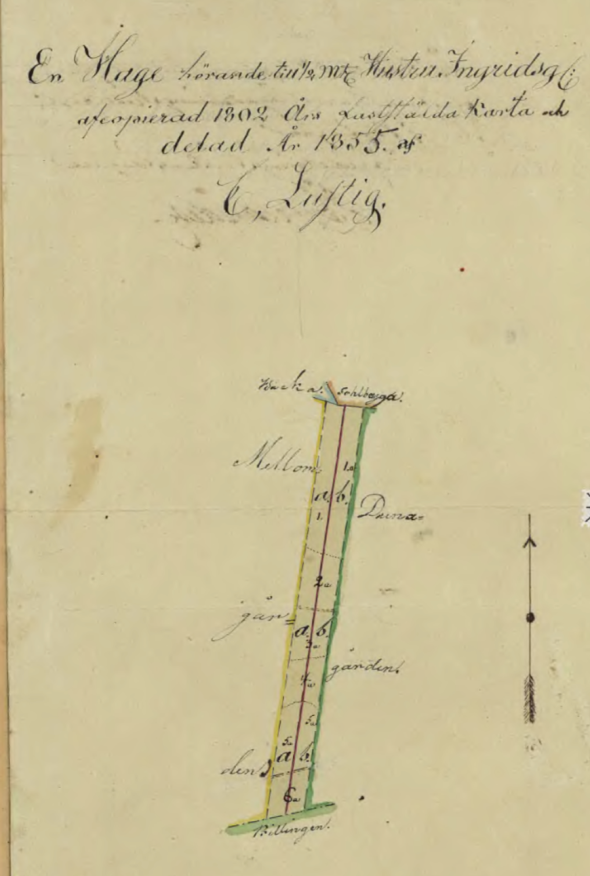 En Hage hörande till 1/2 mtl Hustru Ingridsg (:
afcopierad 1802 Års fastställda Karta och
delad År 1855. af
C, Luftig.
Backa. Stålberga.
Mellom
1.
a. b.
1.
Duna-
2.
går=
a. b.
3.
gården.
4.
5.
5.
a b.
dens
6.
Billingen.